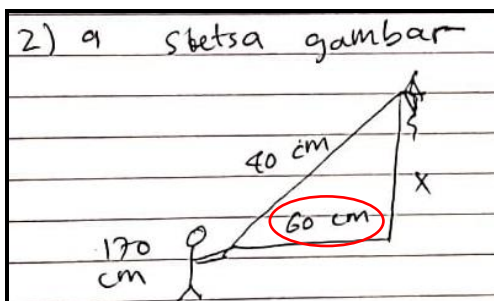 2) a sketsa gambar
40 cm
60 cm
X
170
cm